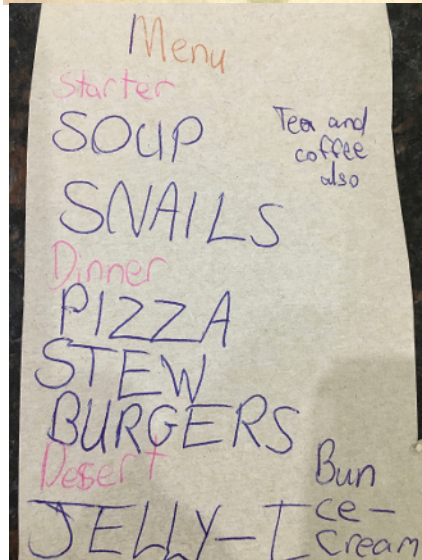 Menu
Starter
SOUP
Tea and
coffee
also
SNAILS
Dinner
PIZZA
STEW
BURGERS
Desert
Bun
JELLY-I
ce-
Cream